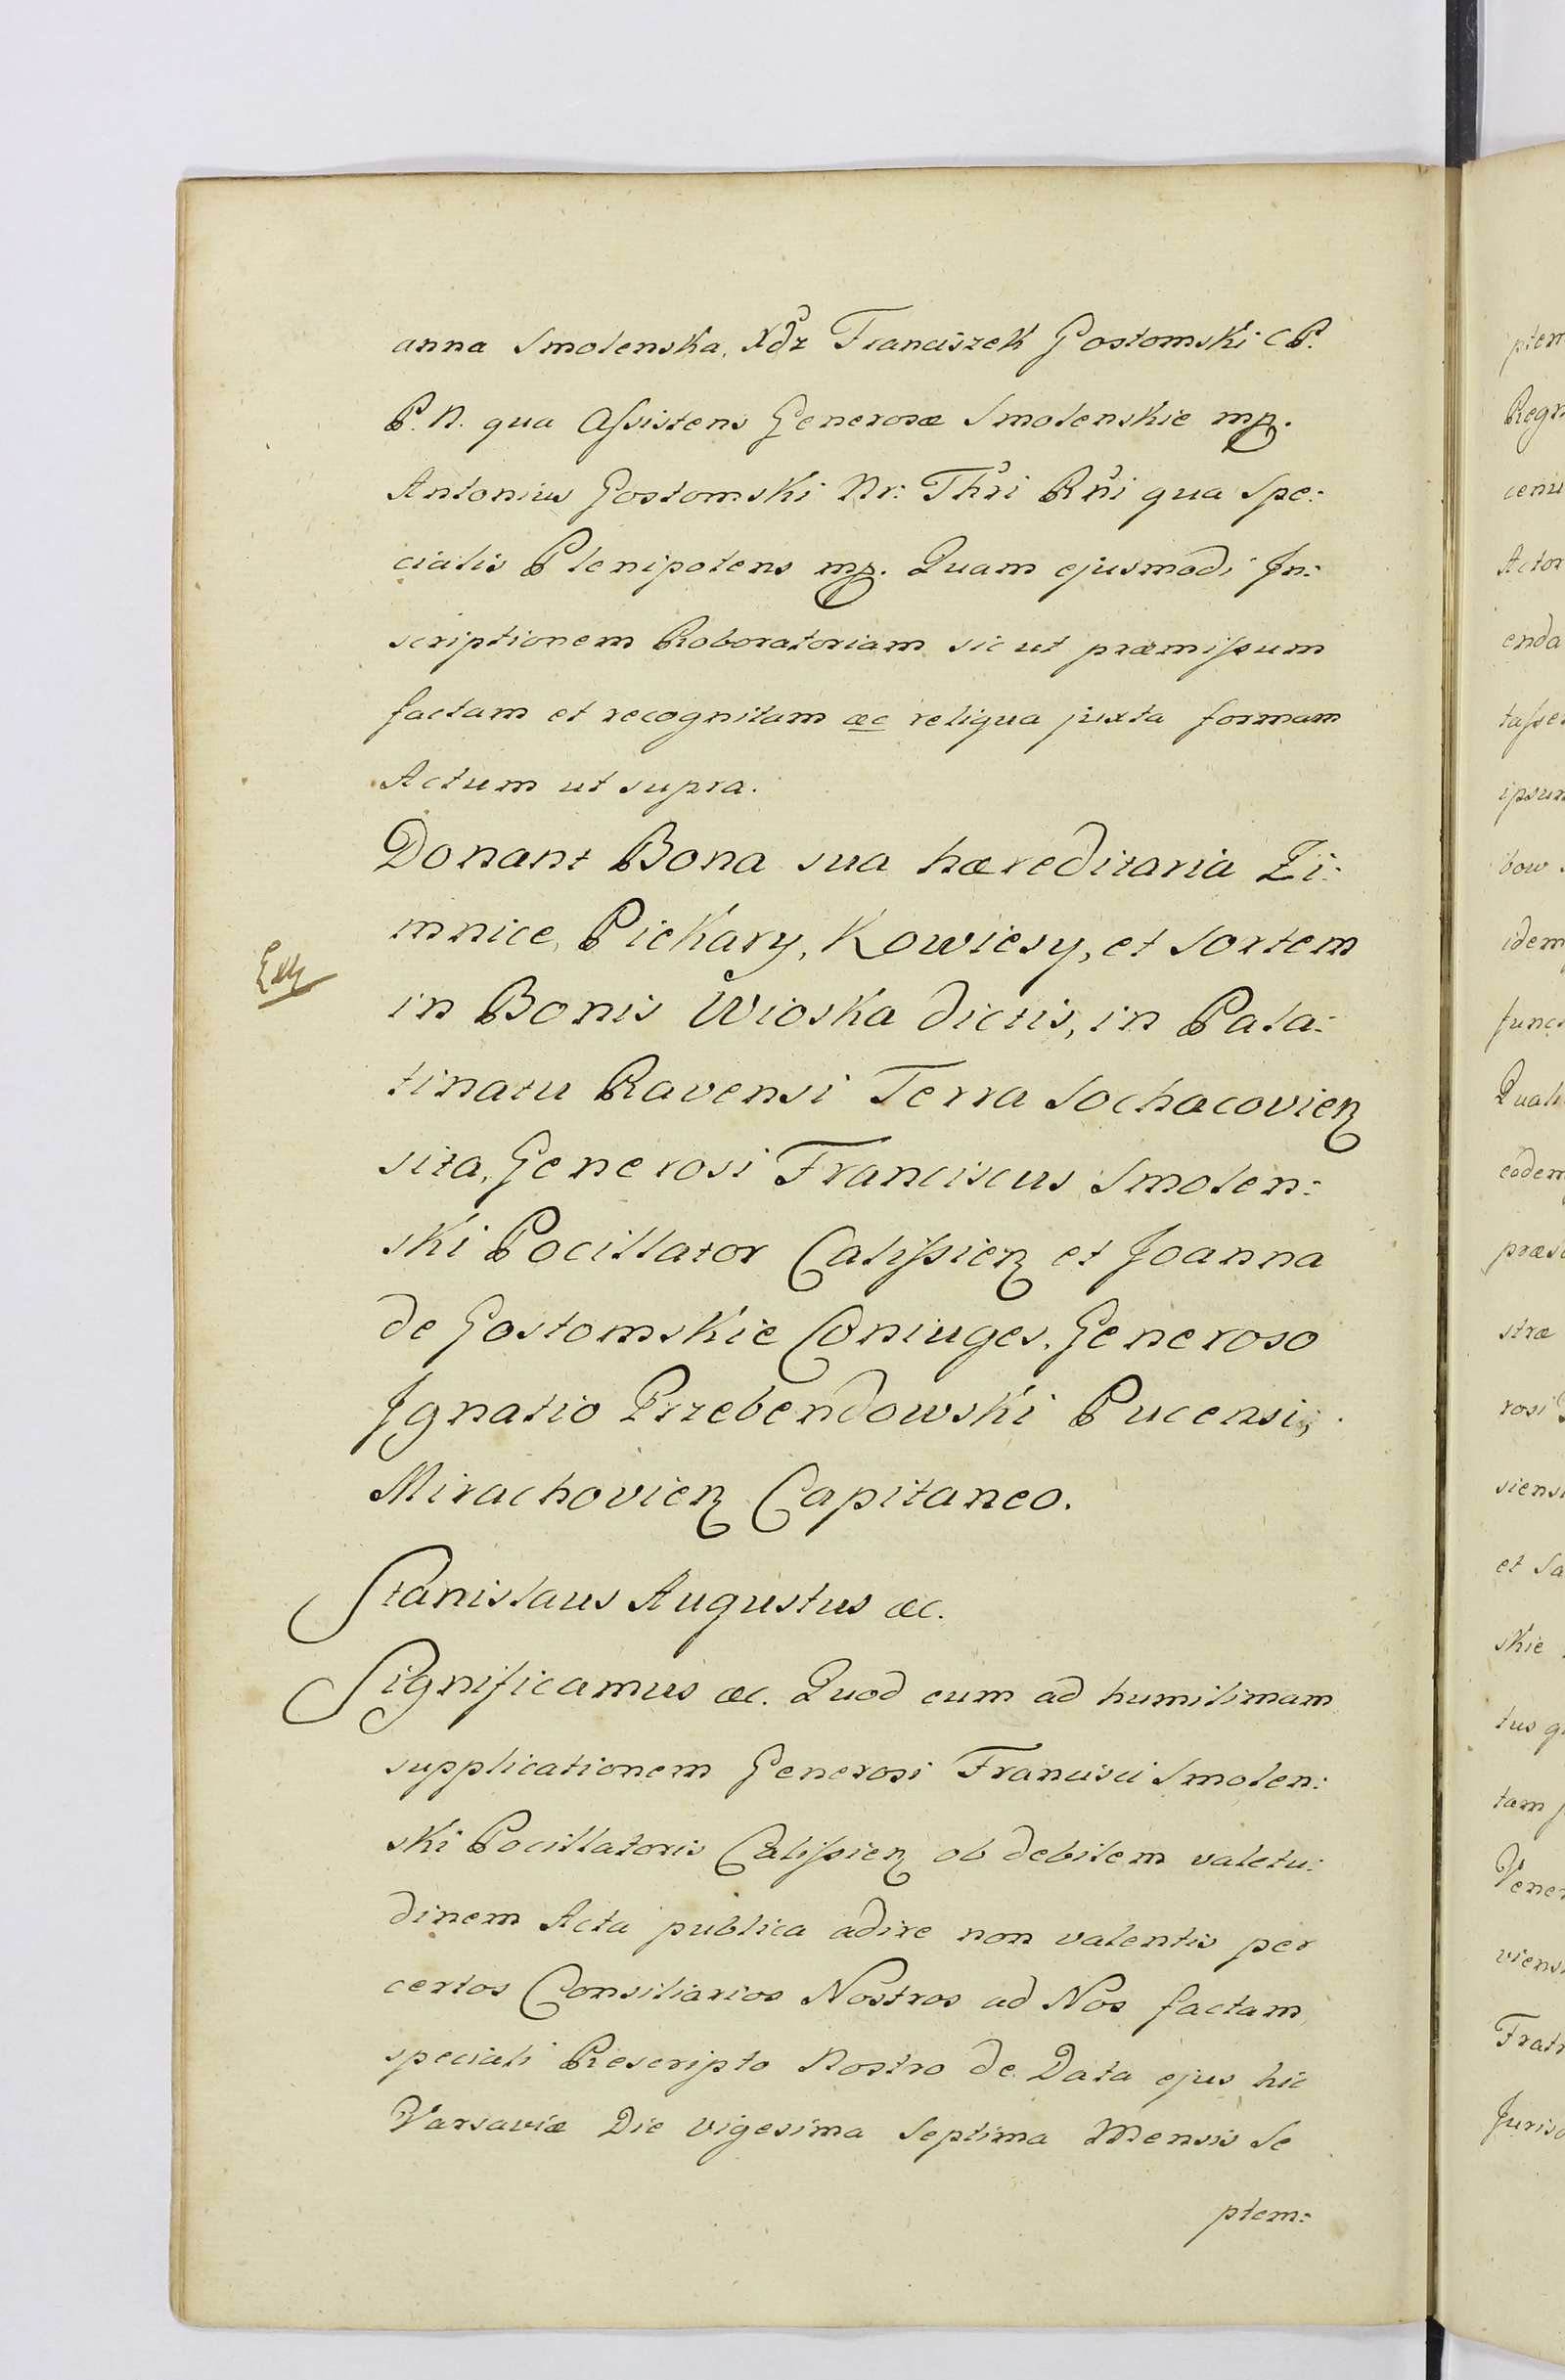 anna Smolenska, Xdz Franciszek Gostomski C P.
P. N. qua Assistens Generosæ Smolenskie mp.
Antonius Gostomski Nr: Thri Rni qua Spe:
cialis Plenipotens mp. Quam ejusmodi In:
scriptionem Roboratoriam sic ut præmissum
factam et recognitam &c reliqua juxta formam
Actum ut supra.
Donant Bona sua hæreditaria Zi:
mnice, Piekary, Kowiesy, et Sortem
in Bonis Wioska dictis, in Pala:
tinatu Ravensi Terra Sochacovien
sita, Generosi Franciscus Smolen:
ski Pocillator Calissien et Joanna
de Gostomskie Coniuges, Generoso
Ignatio Przebendowski Pucensi,
Mirachovien Capitaneo.
Stanislaus Augustus &c.
Significamus &c. Quod cum ad humilimam
supplicationem Generosi Francisci Smolen:
ski Pocillatoris Calissien ob debilem valetu:
dinem Acta publica adire non valentis per
certos Consiliarios Nostros ad Nos factam,
speciali Rescripto Nostro de Data ejus hic
Varsaviæ Die vigesima Septima Mensis Se
ptem:
ptem
Regn
cenu
Actor
enda
tasse
ipsum
bow
idem
func
Quali
eodem
præs
stræ
rosi
siensi
et Sa
skie
tus q
tam
Vener
viens
Fratr
Juris